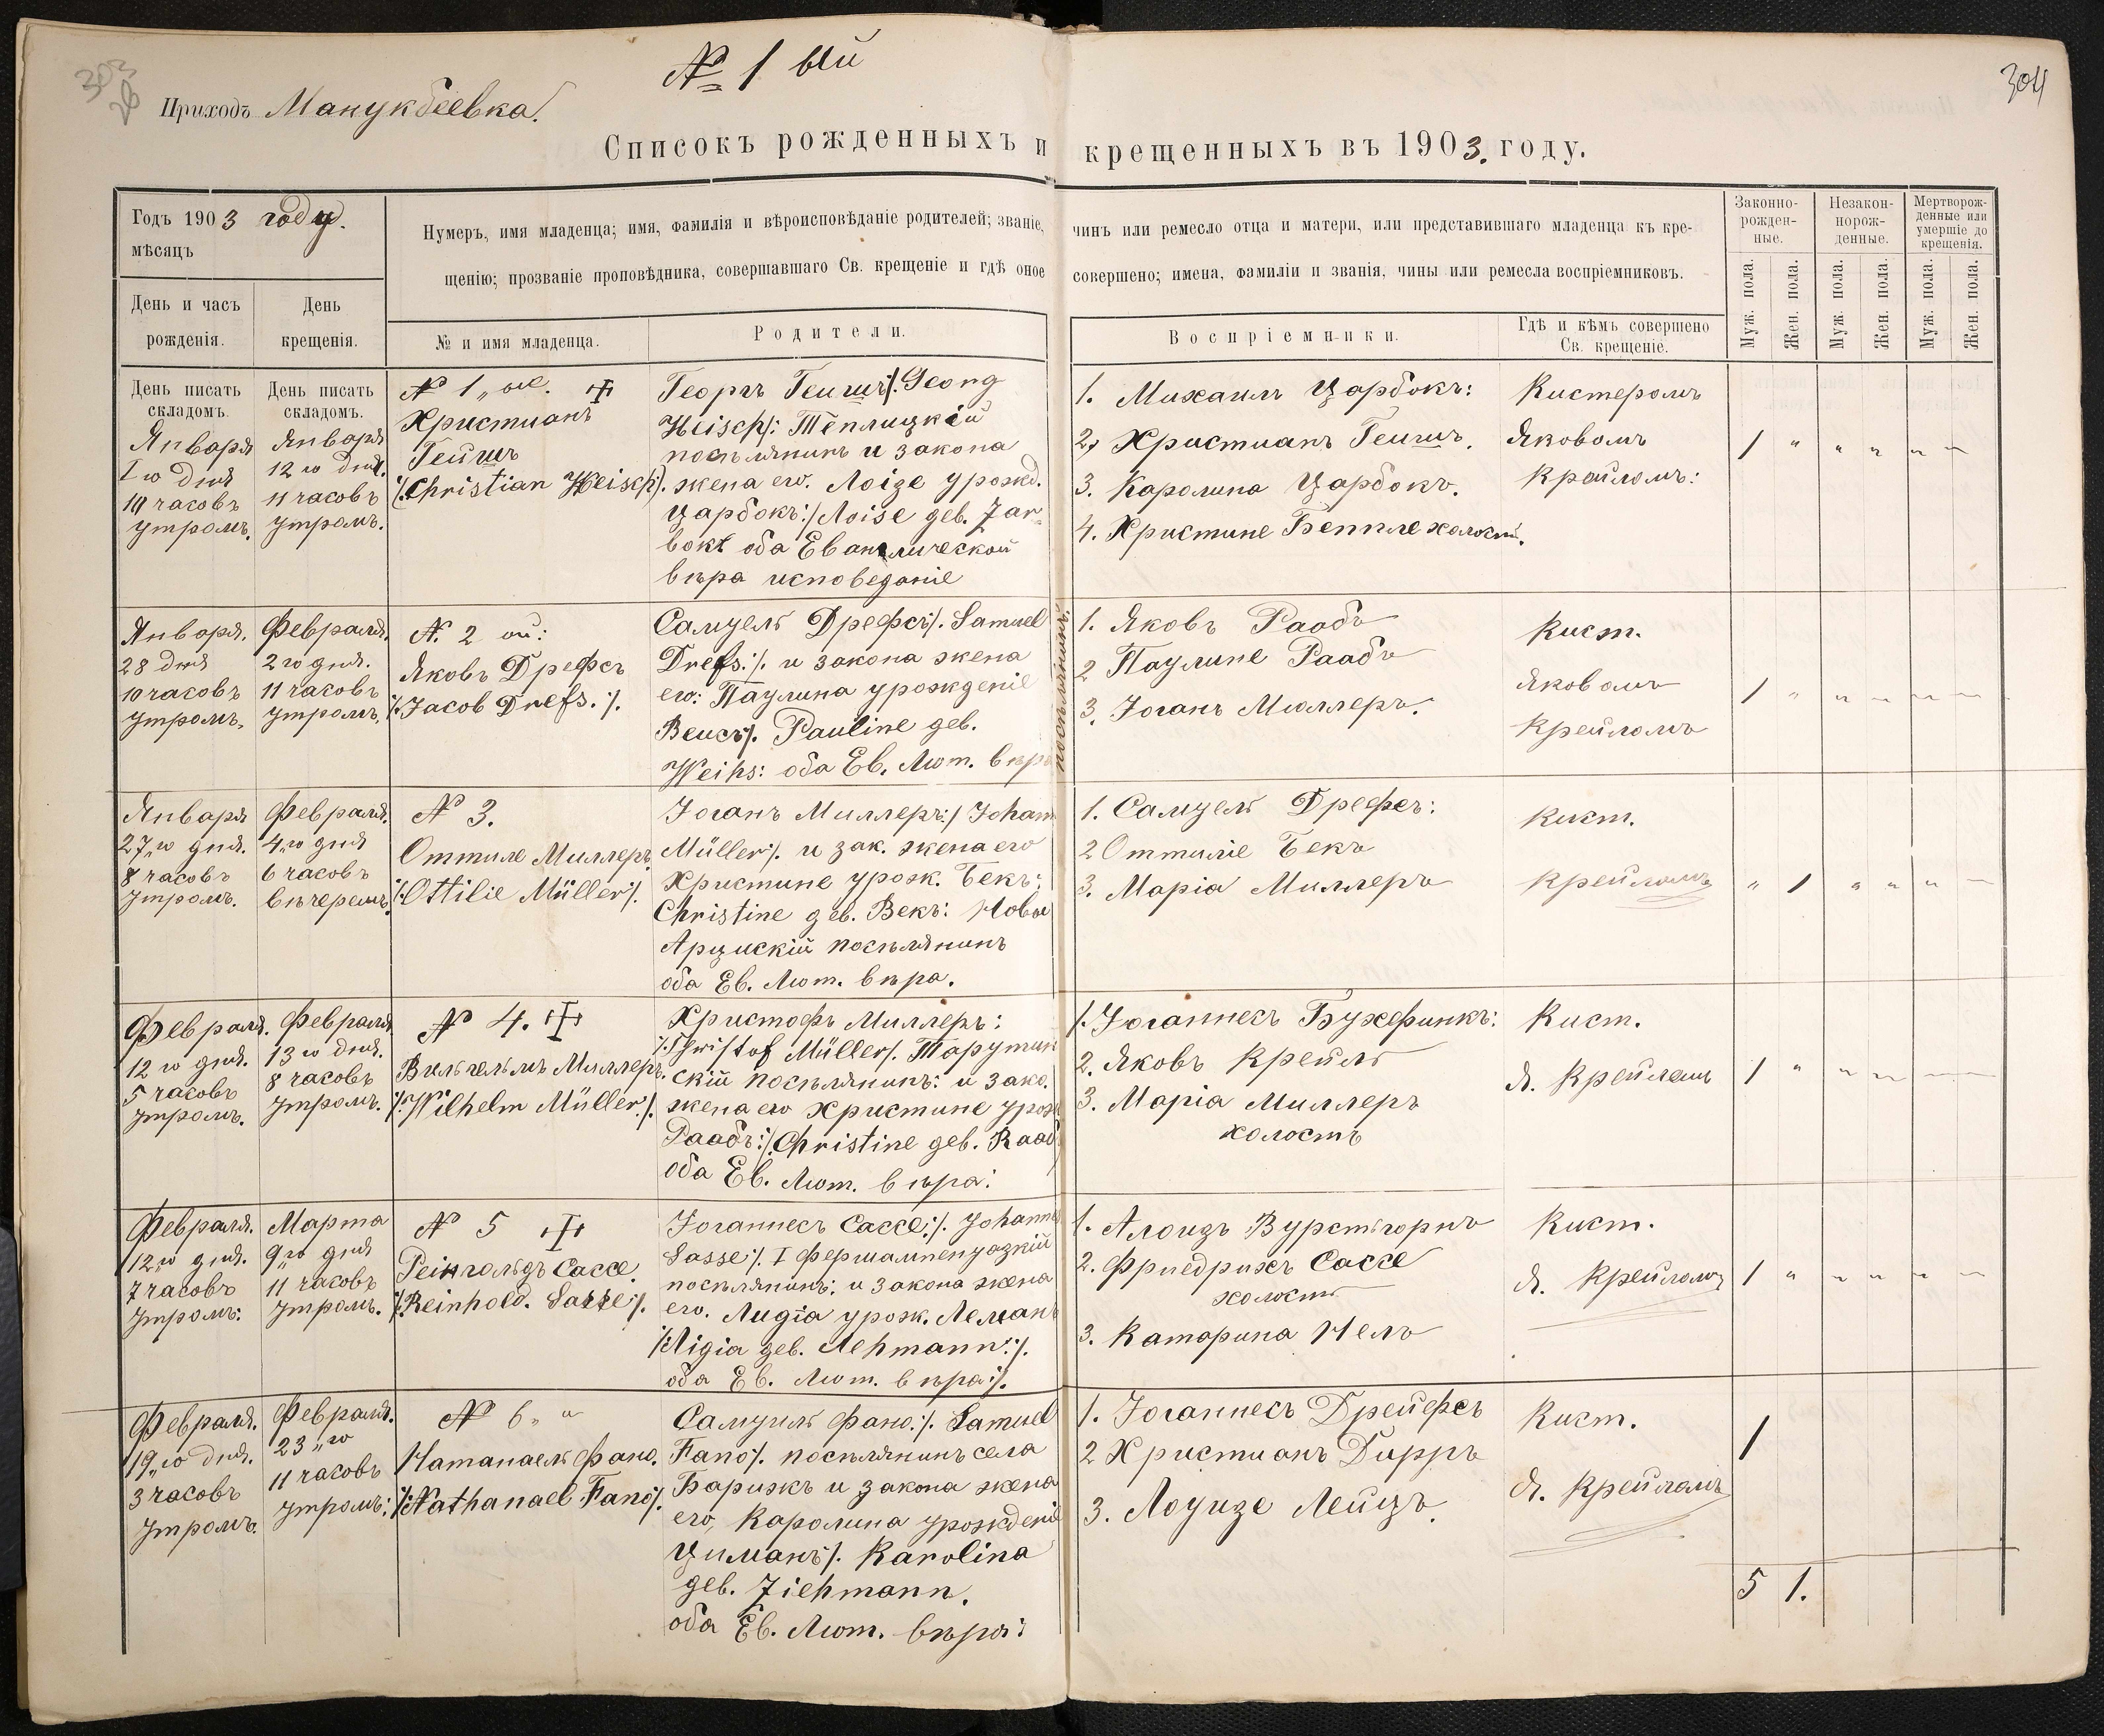 303
№ 1 ый
304
Приходъ Манукбеевка.
Списокъ рожденныхъ и крещенныхъ въ 1903. году.
Годъ 1903 году.
мѣсяцъ
День и часъ
рожденія.
День
крещенія.
Нумеръ, имя младенца; имя, фамилія и вѣроисповѣданіе родителей; званіе, чинъ или ремесло отца и матери, или представившаго младенца къ кре-
щенію; прозваніе проповѣдника, совершавшаго Св. крещеніе и гдѣ оное совершено; имена, фамиліи и званія, чины или ремесла воспріемниковъ.
№ и имя младенца.
Родители.
Воспріемники.
Гдѣ и кѣмъ совершено
Св. крещеніе.
Законно-
рожден-
ные.
Незакон-
норож-
денные.
Мертворож-
денные или
умершіе до
крещенія.
Муж. пола.
Жен. пола.
Муж. пола.
Жен. пола.
Муж. пола.
Жен. пола.
День писать
складомъ.
Января
1 го дня
10 часовъ
утромъ.
День писать
складомъ.
Января
12 го дня.
11 часовъ
утромъ.
№ 1
Христианъ
Гейшъ
/:Christian Heisch/.
Георгъ Геишъ/. Georg
Heisch/: Теплицкій
посѣлянинъ и закона
жена его. Лоизе урожд.
Царбокъ:/ Loise geb. Zar-
bokt оба Евангелической
вѣра исповеданіе
1. Михаилъ Царбокъ:
2, Христианъ Геишъ.
3. Каролина Царбокъ.
4. Христине Бепплe холост.
Кистеромъ
Яковомъ
Крейломъ:
1 " " " " —
Января.
28 дня
10 часовъ
утромъ.
Февраля.
2 го дня.
11 часовъ
утромъ.
№. 2 ой:
Яковъ Дрефсъ
/:Jacob Drefs. :/.
Самуель Дрефсъ/. Samuel
Drefs:/. и закона жена
его: Паулина урожденіе
Веисъ/. Pauline geb.
Weihs: оба Ев. Лют. вѣр
посѣлянинъ:
1. Яковъ Раабъ
2 Паулине Раабъ
3. Иоганъ Мюллеръ.
Кист.
Яковомъ
Крейломъ
1 " " " " —
Января
27„го дня.
8 часовъ
утромъ.
Февраля.
4„го дня
6 часовъ
вѣчеремъ.
№ 3.
Оттиле Миллеръ.
/:Ottilie Müller/.
Иоганъ Миллеръ:/ Johann
Müller/. и зак. жена его
Христине урож. Бекъ:
Christine geb. Векъ: Ново
Арцискій посѣлянинъ
оба Ев. Лют. вѣра.
1. Самуель Дрефсъ:
2 Оттиліе Бекъ
3. Маріа Миллеръ
Кист.
Крейломъ
" 1 " " " —
Февраля.
12 го дня.
5 часовъ
утромъ.
Февраля
13 го дня.
8 часовъ
утромъ.
№ 4.
Вильгельмъ Миллеръ.
/:Wilhelm Müller/.
Христофъ Миллеръ:
/:Christof Müller/. Тарутин
скій посѣлянинъ: и зако.
жена его Христине урож
Раабъ:/.Christine geb. Raab
оба Ев. Лют. вѣра:
1. Иоганнесъ Бухфинкъ:
2. Яковъ Крейль
3. Маріа Миллеръ
холостъ
Кист.
Я. Крейломъ
1 " " " — —
Февраля.
12„го дня.
7 часовъ
утромъ:
Марта
9„го дня
11 часовъ
утромъ.
№ 5
Рейнгольдъ Сассе.
/:Reinhold. Sasse:/.
Иоганнесъ Сассе:/. Johannes
Sasse:/. I Фершампенуазкій
посѣлянинъ: и закона жена
его. Лидіа урож. Леманъ
/:Ligia geb. Lehmann:/.
оба Ев. Лют. вѣра:/.
1. Алоизъ Вурстгорнъ
2. Фриедрихъ Сассе
холостъ
3. Катарина Нель
Кист.
Я. Крейломъ
1 " " " " —
Февраля.
19„го дня.
3 часовъ
утромъ.
Февраля.
23„го
11 часовъ
утромъ:
№ 6„ "
Натанаель Фано.
/:Nathanael Fano/.
Самуиль Фано:/. Samuel
Fano/. посѣлянинъ села
Парижъ и закона жена
его, Каролина урожденіе
Циманъ/. Karolina
geb. Ziehmann.
оба Ев. Лют. вѣра:
1. Иоганнесъ Дрейфсъ
2 Христианъ Дирръ
3. Лоуизе Лейцъ.
Кист.
Я. Крейломъ
1
5 1.